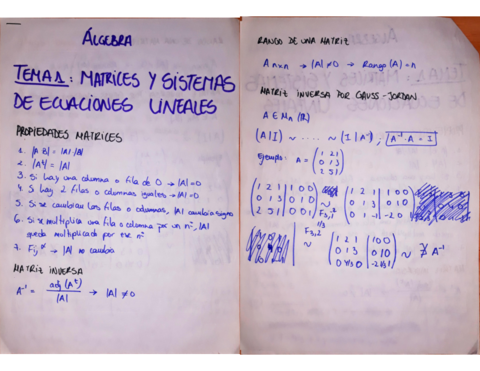 ÁLGEBRA
TEMA 1: MATRICES Y SISTEMAS
DE ECUACIONES LINEALES
PROPIEDADES MATRICES
1. |A·B| = |A|·|B|
2. |Aᵗ| = |A|
3. Si hay una columna o fila de 0 → |A|=0
4. Si hay 2 filas o columnas iguales → |A|=0
5. Si se cambian las filas o columnas, |A| cambia signo
6. Si se multiplica una fila o columna por un nº, |A|
queda multiplicado por ese nº
7. → |A| no cambia
MATRIZ INVERSA
A⁻¹ = adj(Aᵗ) / |A| → |A| ≠ 0
RANGO DE UNA MATRIZ
A n×n → |A| ≠ 0 → Rango (A) = n
MATRIZ INVERSA POR GAUSS-JORDAN
A ∈ Mn (R)
(A|I) ~ ..... ~ (I|A⁻¹), A⁻¹·A = I
Ejemplo: A = (1 2 1
0 1 3
2 5 1)
(1 2 1 | 1 0 0 (1 2 1 | 1 0 0
0 1 3 | 0 1 0 ~ 0 1 3 | 0 1 0
2 5 1 | 0 0 1) 0 1 -1 | -2 0
~ (1 2 1 | 1 0 0
0 1 3 | 0 1 0 ~ ∄ A⁻¹